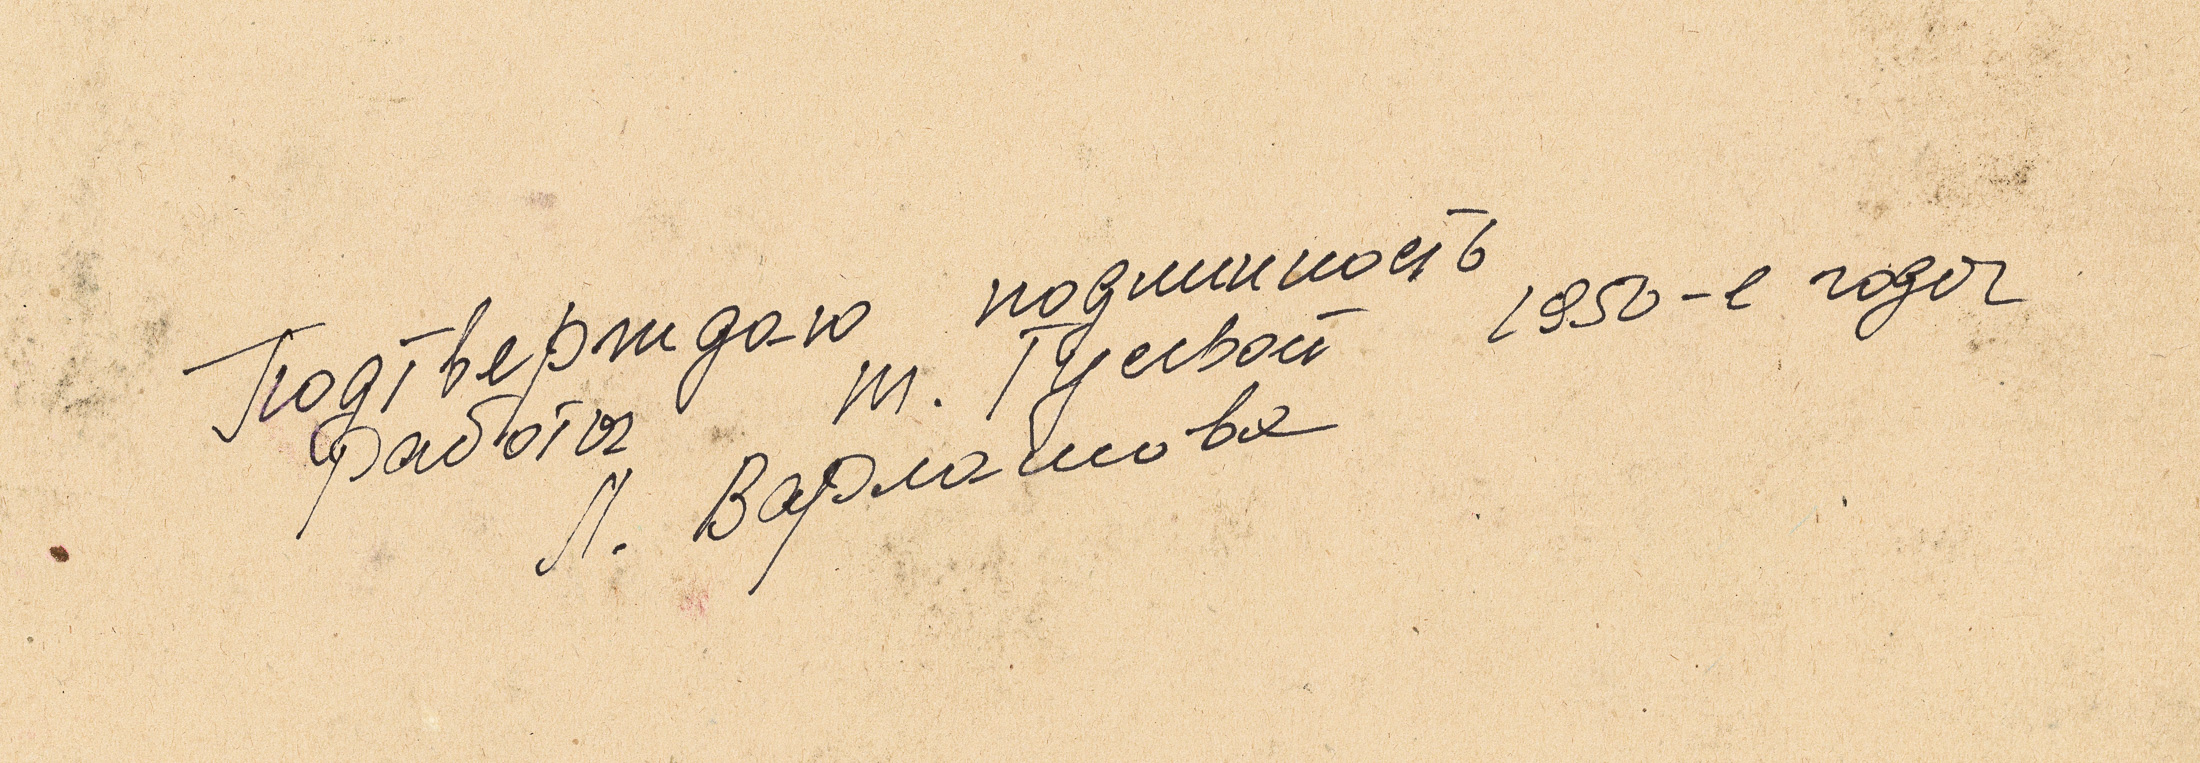 Подтверждаю подлинность
работы т. Гусевой 1950-е годы
Л. Варламова